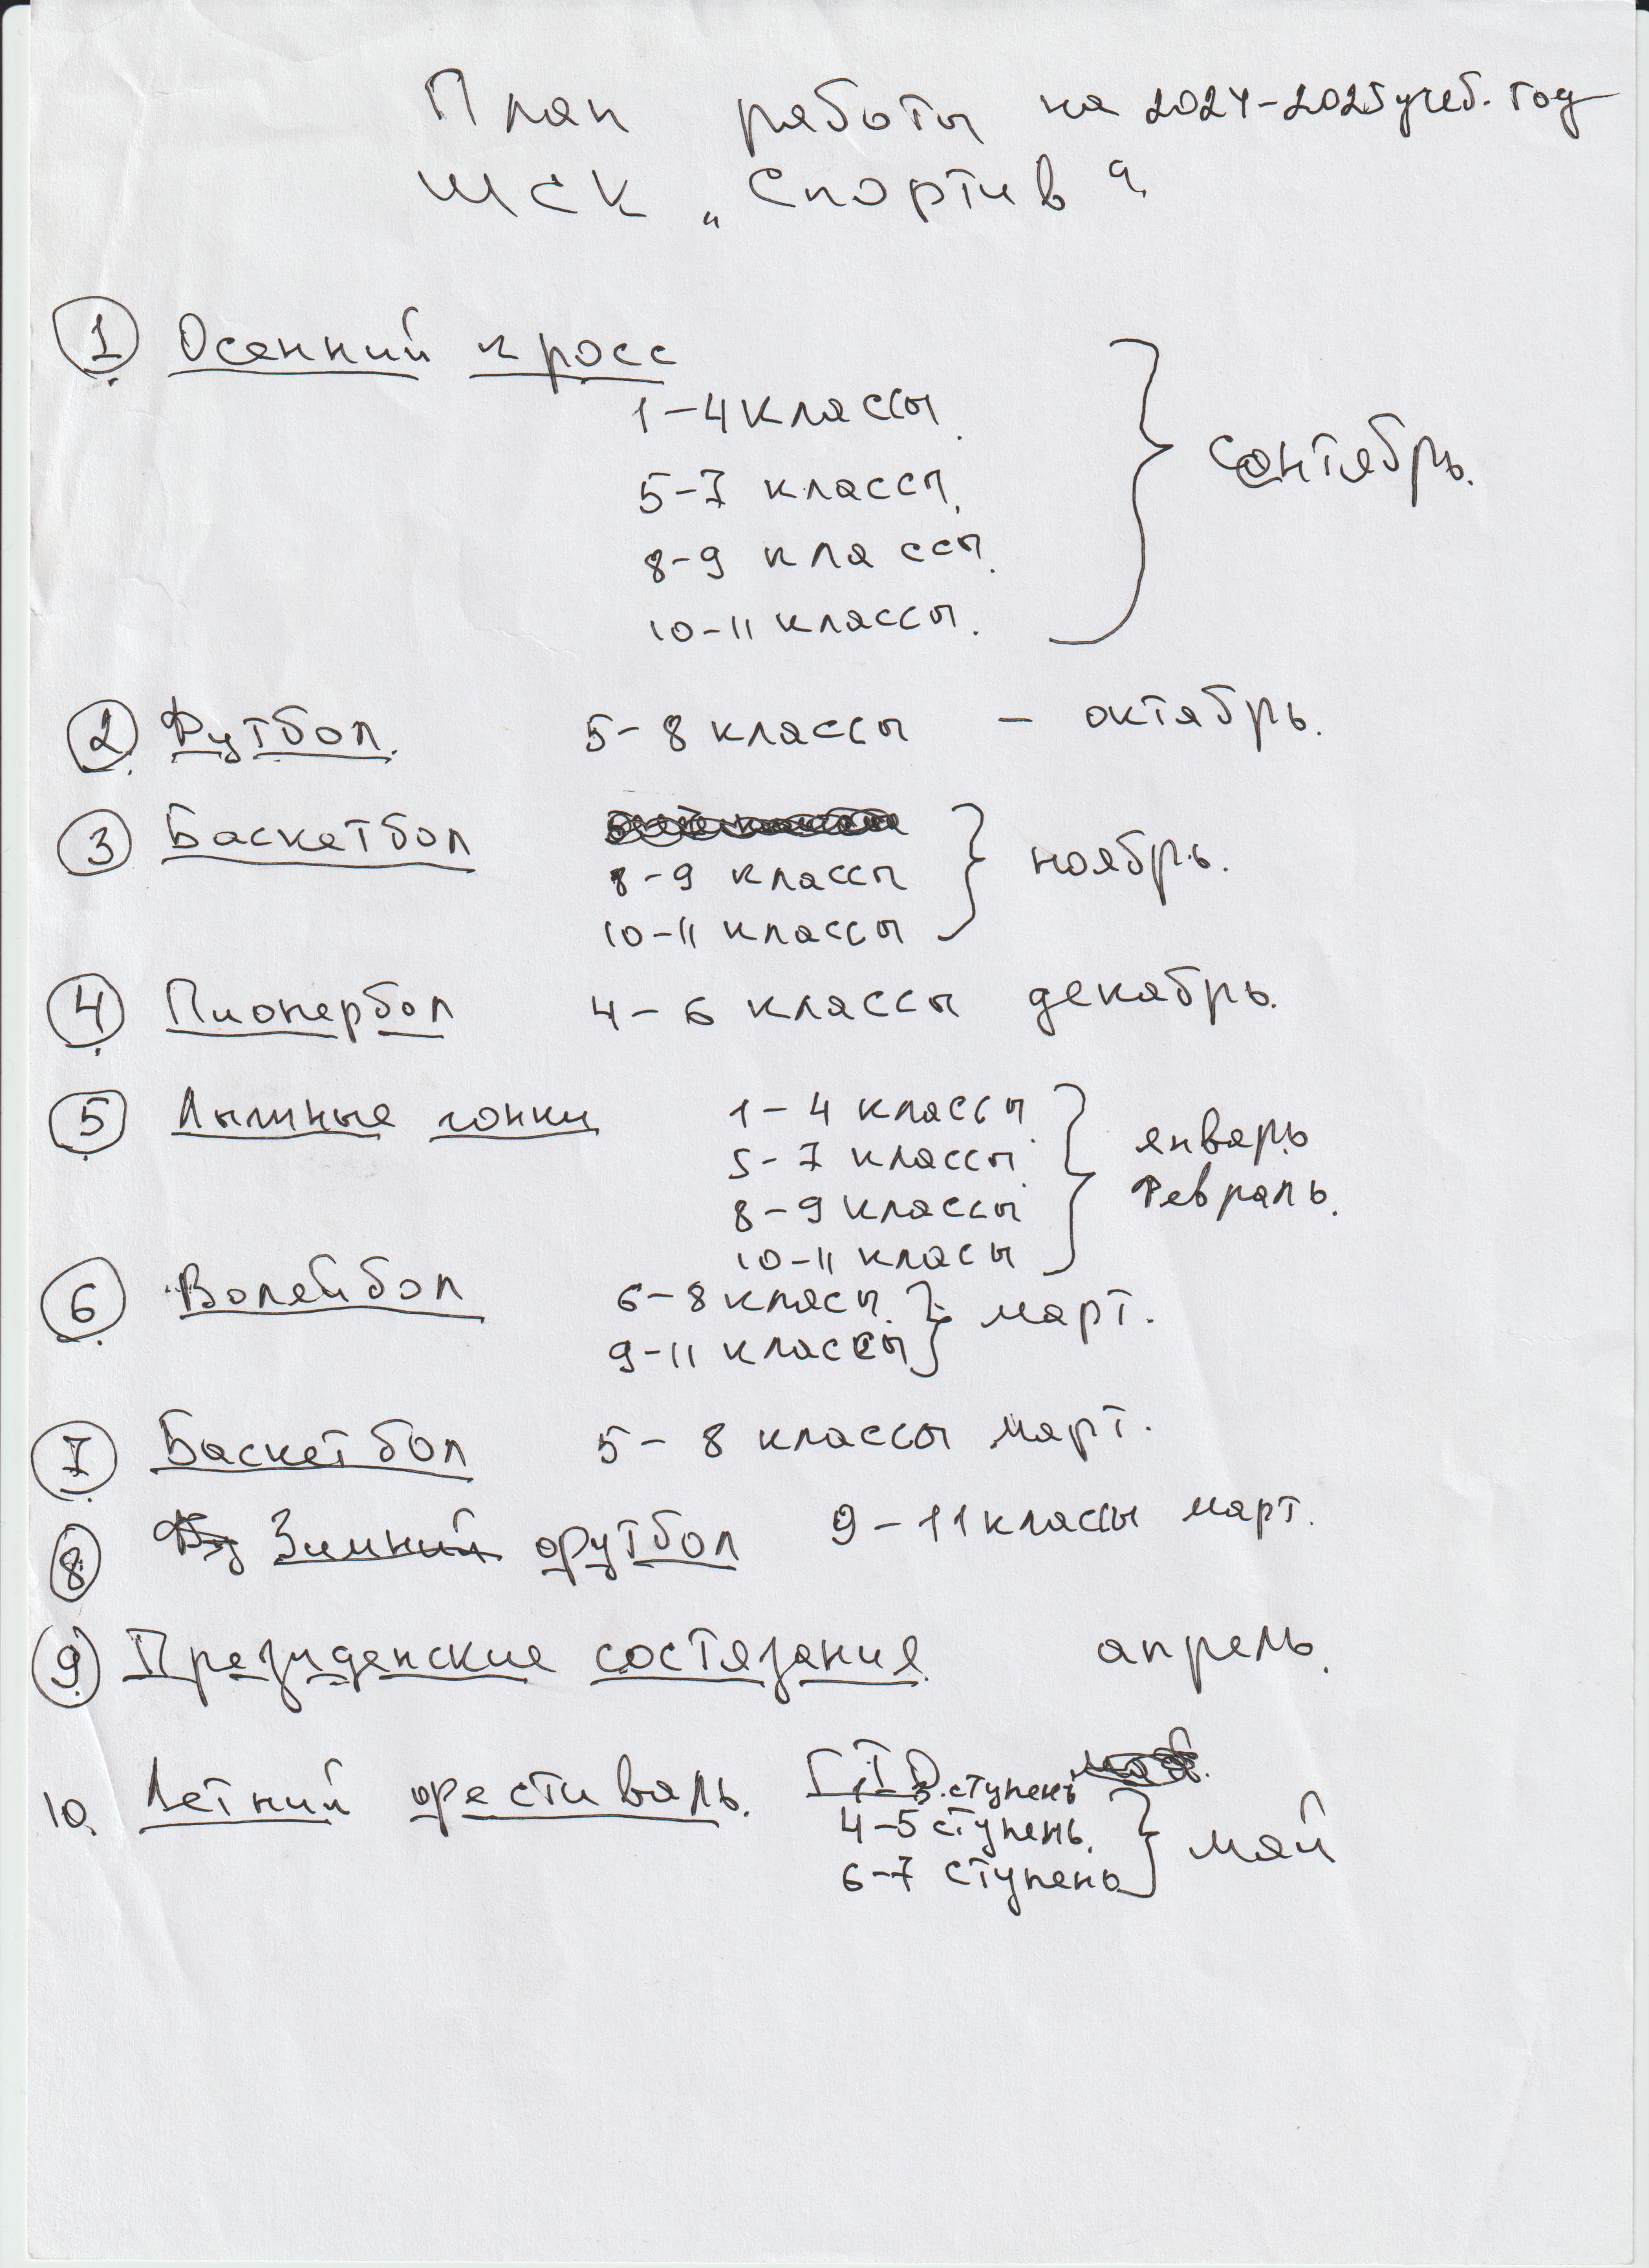 План работы на 2024-2025 учеб. год
ШСК „Спортив“
1. Осенний кросс
1-4 классы.
5-7 классы.
8-9 классы.
10-11 классы.
сентябрь.
2. Футбол. 5-8 классы - октябрь.
3. Баскетбол
8-9 классы
10-11 классы
ноябрь.
4. Пионербол 4-6 классы декабрь.
5. Лыжные гонки 1-4 классы.
5-7 классы.
8-9 классы.
10-11 класы
январь
февраль.
6. Волейбол 6-8 класы.
9-11 классы
март.
7. Баскетбол 5-8 классы март.
8. Зимний футбол 9-11 классы март.
9. Президенские состязания. апрель.
10. Летний фестиваль. ГТО
1-3 ступень
4-5 ступень.
6-7 ступень
май